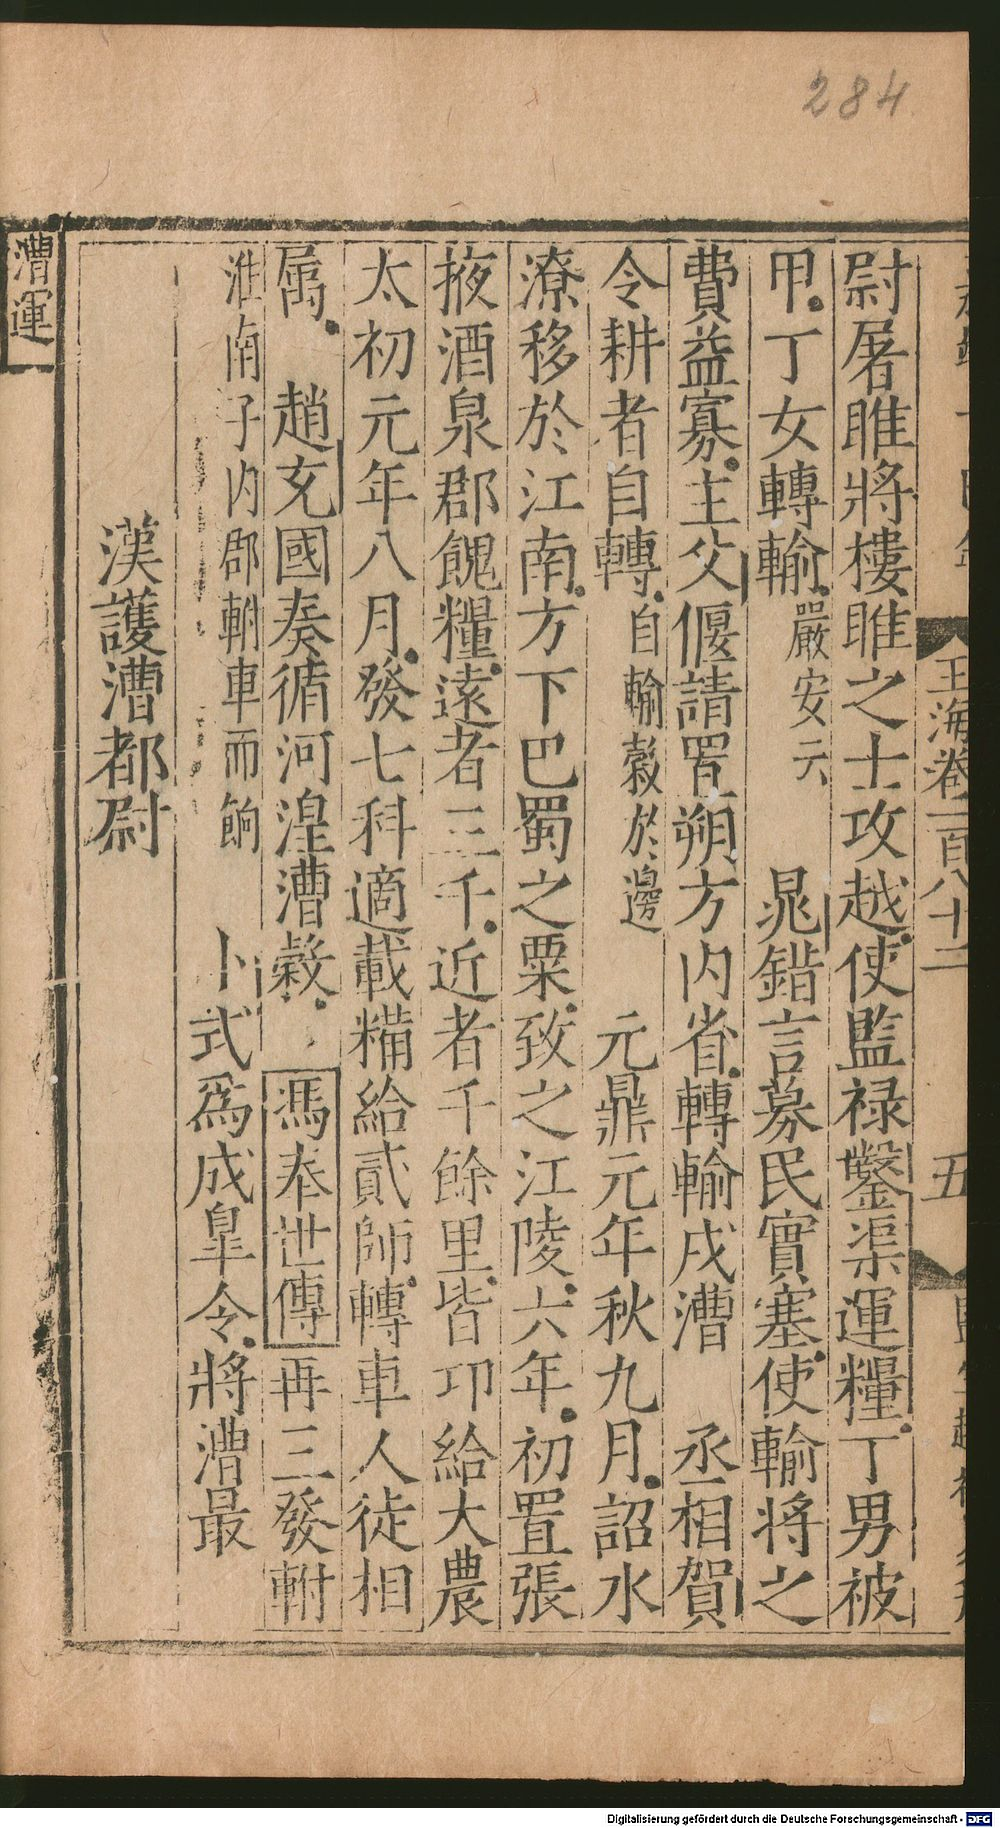 284
玉海卷一百八十二
五
尉屠睢將樓睢之士攻越使監祿鑿渠運糧丁男被
甲丁女轉輸嚴安云 晁錯言募民實塞使輸將之
費益寡主父偃請置朔方内省轉輸戍漕 丞相賀
令耕者自轉自輸穀於邊 元鼎元年秋九月詔水
潦移於江南方下巴蜀之粟致之江陵六年初置張
掖酒泉郡餽糧遠者三千近者千餘里皆卬給大農
太初元年八月發七科適載糒給貳師轉車人徒相
屬 趙充國奏循河湟漕穀 馮奉世傳再三發軵
淮南子内郡軵車而餉 卜式爲成臯令將漕最
漢護漕都尉
漕運
Digitalisierung gefördert durch die Deutsche Forschungsgemeinschaft - DFG